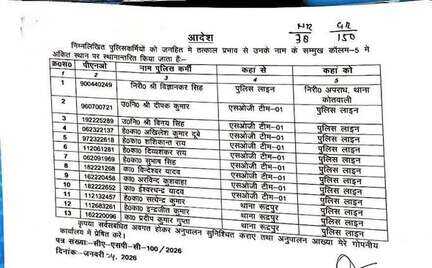 आदेश
NR GR
38 150
निम्नलिखित पुलिसकर्मियों को जनहित मे तत्काल प्रभाव से उनके नाम के सम्मुख कॉलम-5 मे
अंकित स्थान पर स्थानान्तरित किया जाता है:-
क्र0सं0 पीएनओ नाम पुलिस कर्मी कहा से कहा को
1 2 3 4 5
1 900440249 निरी0 श्री विज्ञानकर सिंह पुलिस लाइन निरी0 अपराध, थाना कोतवाली
2 960700721 उ0नि0 श्री दीपक कुमार एसओजी टीम-01 पुलिस लाइन
3 192225289 उ0नि0 श्री विनय सिंह एसओजी टीम-01 पुलिस लाइन
4 062322137 हे0का0 अखिलेश कुमार दूबे एसओजी टीम-01 पुलिस लाइन
5 972322618 हे0का0 शशिकान्त राय एसओजी टीम-01 पुलिस लाइन
6 112061281 हे0का0 दिव्यशंकर राय एसओजी टीम-01 पुलिस लाइन
7 062091969 हे0का0 सुभाष सिंह एसओजी टीम-01 पुलिस लाइन
8 182221268 का0 विन्देश्वर यादव एसओजी टीम-01 पुलिस लाइन
9 162220456 का0 अरविन्द कुशवाहा एसओजी टीम-01 पुलिस लाइन
10 182222652 का0 ईश्वरचन्द यादव एसओजी टीम-01 पुलिस लाइन
11 112132457 हे0का0 सत्येन्द्र कुमार एसओजी टीम-01 पुलिस लाइन
12 112683261 हे0का0 इन्द्रजीत कुमार थाना रूद्रपुर पुलिस लाइन
13 162220096 का0 प्रदीप कुमार गुप्ता थाना रूद्रपुर पुलिस लाइन
कृपया सर्वसंबंधित अवगत होकर अनुपालन सुनिश्चित कराएं तथा अनुपालन आख्या मेरे गोपनीय
कार्यालय में प्रेषित करें।
पत्र संख्या:-सीए-एसपी-सी-100/2026
दिनांक:-जनवरी 2026